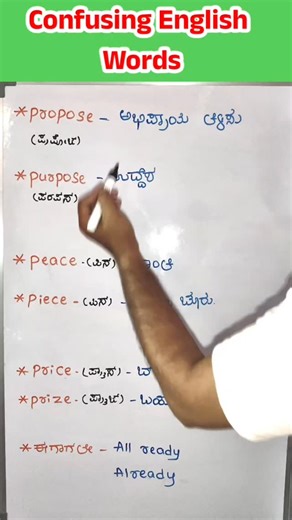 Confusing English
Words
* Propose - ಅಭಿಪ್ರಾಯ ತಿಳಿಸು
(ಪ್ರಪೋಜ಼್)
* Purpose - ಉದ್ದೇಶ
(ಪರಪಸ್)
* Peace - (ಪಿಸ್)
* Piece - (ಪಿಸ್) - ಚೂರು
* Price - (ಪ್ರೈಸ್) -
* Prize - (ಪ್ರೈಜ಼್) -
* ಈಗಾಗಲೇ - All ready
Already